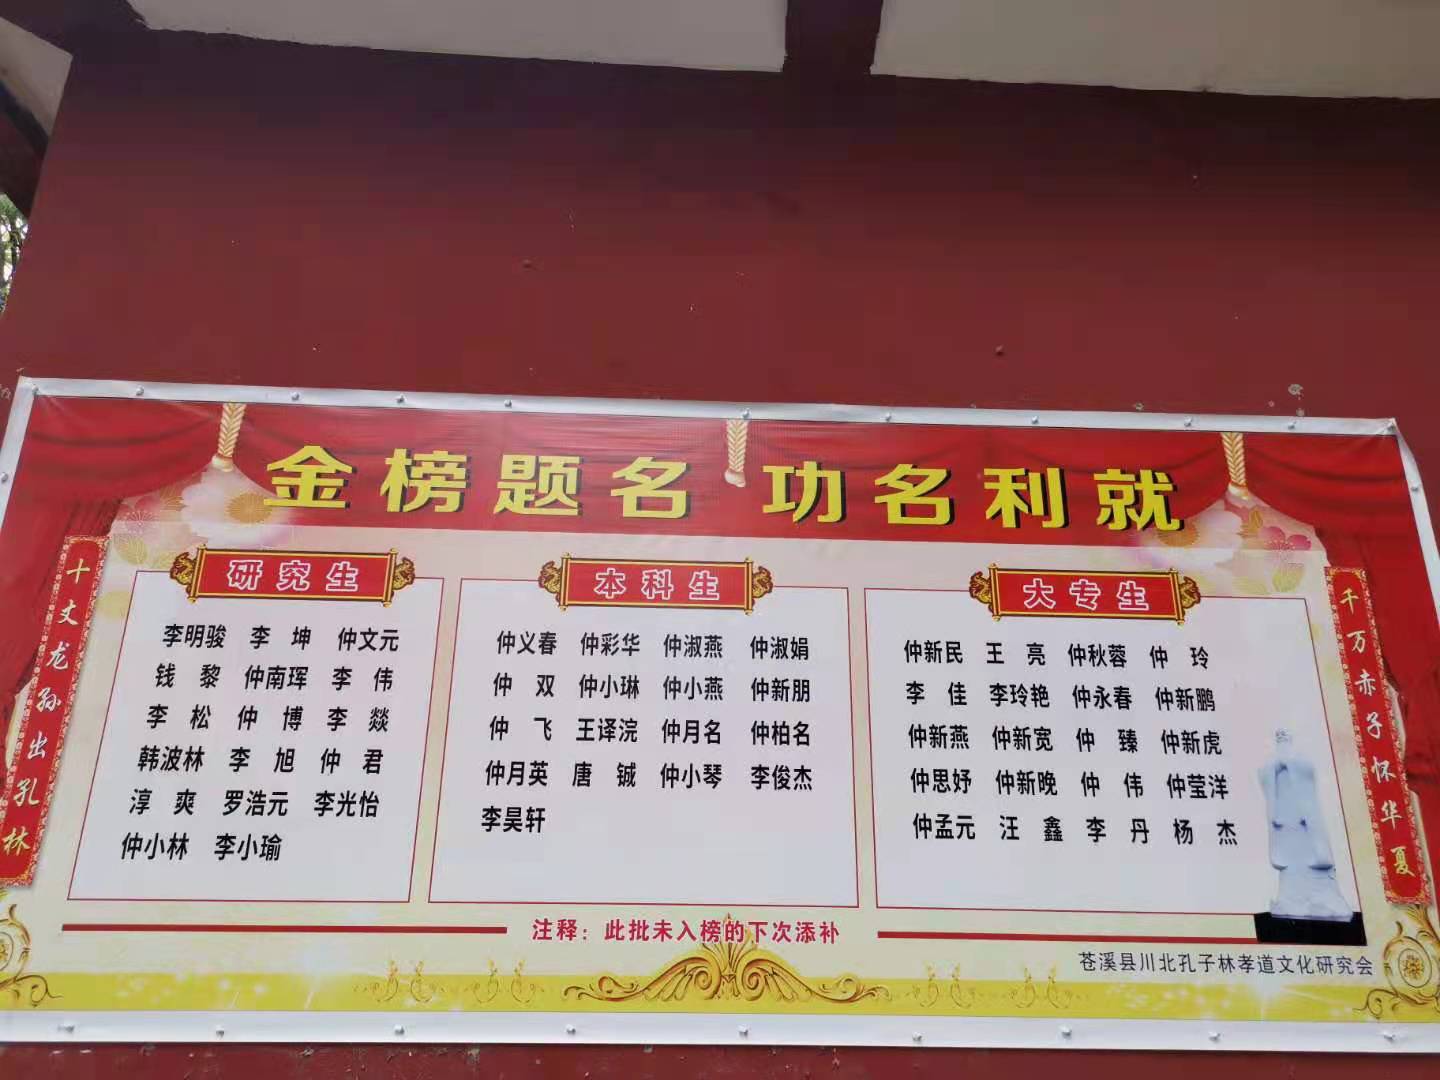 金榜题名 功名利就
十丈龙孙出孔林
千万赤子怀华夏
研究生
李明骏 李坤 仲文元
钱黎 仲南珲 李伟
李松 仲博 李燚
韩波林 李旭 仲君
淳爽 罗浩元 李光怡
仲小林 李小瑜
本科生
仲义春 仲彩华 仲淑燕 仲淑娟
仲双 仲小琳 仲小燕 仲新朋
仲飞 王译浣 仲月名 仲柏名
仲月英 唐铖 仲小琴 李俊杰
李昊轩
大专生
仲新民 王亮 仲秋蓉 仲玲
李佳 李玲艳 仲永春 仲新鹏
仲新燕 仲新宽 仲臻 仲新虎
仲思妤 仲新晚 仲伟 仲莹洋
仲孟元 汪鑫 李丹 杨杰
注释：此批未入榜的下次添补
苍溪县川北孔子林孝道文化研究会